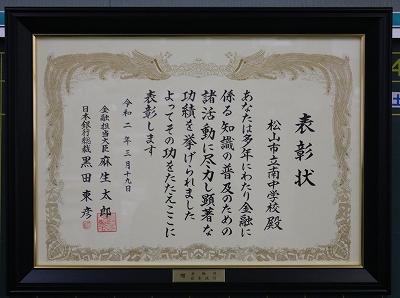 表彰状
松山市立南中学校 殿
あなたは多年にわたり金融に
係る知識の普及のための
諸活動に尽力し顕著な
功績を挙げられました
よってその功をたたえここに
表彰します
令和二年三月十九日
金融担当大臣 麻生太郎
日本銀行総裁 黒田東彦